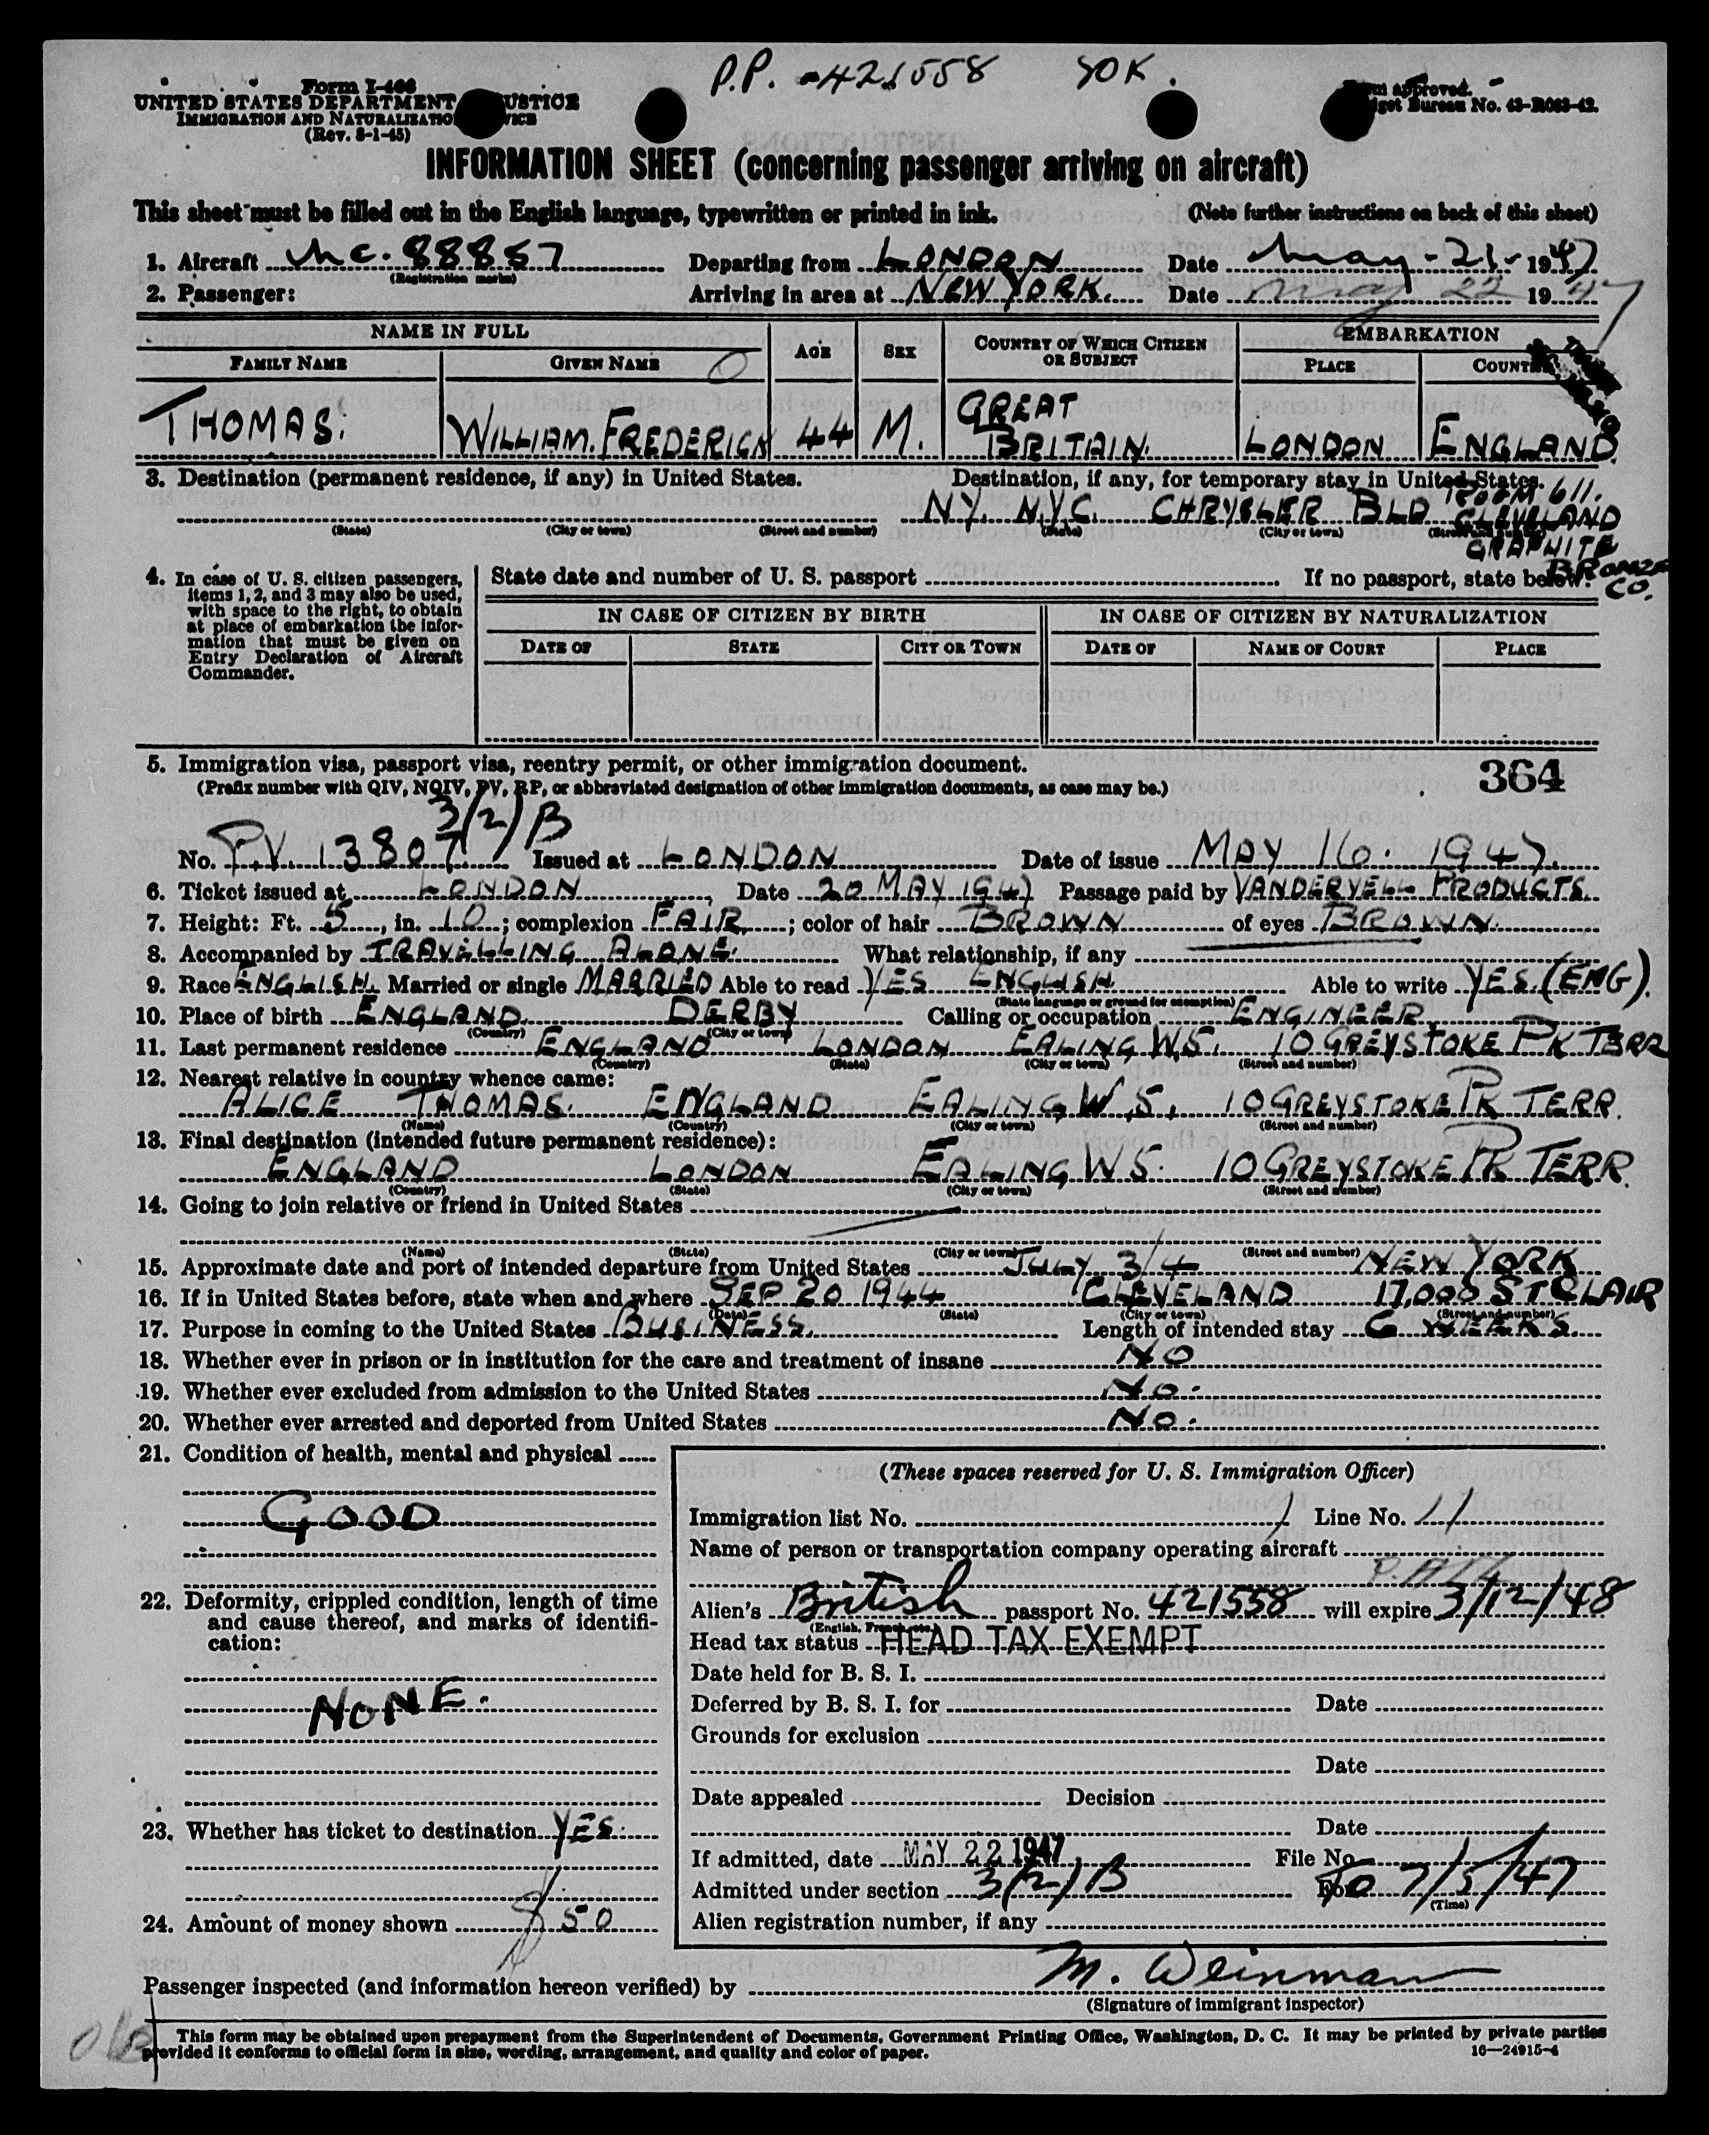 P.P. -421558 YOK.
Form I-466
UNITED STATES DEPARTMENT JUSTICE
IMMIGRATION AND NATURALIZATION
(Rev. 8-1-45)
approved.
Budget Bureau No. 43-R063-42.
INFORMATION SHEET (concerning passenger arriving on aircraft)
This sheet must be filled out in the English language, typewritten or printed in ink. (Note further instructions on back of this sheet)
1. Aircraft NC. 88857 Departing from LONDON Date May-21- 1947
(Registration marks)
2. Passenger: Arriving in area at NEW YORK. Date May 22 1947
NAME IN FULL AGE SEX COUNTRY OF WHICH CITIZEN OR SUBJECT EMBARKATION
FAMILY NAME GIVEN NAME PLACE COUNTRY
THOMAS. WILLIAM. FREDERICK 44 M. GREAT BRITAIN. LONDON ENGLAND.
3. Destination (permanent residence, if any) in United States. Destination, if any, for temporary stay in United States.
N.Y. N.Y.C. CHRYSLER BLD ROOM 611. CLEVELAND GRAPHITE BRONZE CO.
(State) (City or town) (Street and number) (State) (City or town) (Street and number)
4. In case of U. S. citizen passengers, items 1, 2, and 3 may also be used, with space to the right, to obtain at place of embarkation the information that must be given on Entry Declaration of Aircraft Commander.
State date and number of U. S. passport If no passport, state below:
IN CASE OF CITIZEN BY BIRTH IN CASE OF CITIZEN BY NATURALIZATION
DATE OF STATE CITY OR TOWN DATE OF NAME OF COURT PLACE
5. Immigration visa, passport visa, reentry permit, or other immigration document. 364
(Prefix number with QIV, NQIV, PV, RP, or abbreviated designation of other immigration documents, as case may be.)
3/2/B
No. P.V. 13807 Issued at LONDON Date of issue MAY 16. 1947.
6. Ticket issued at LONDON Date 20 MAY 1947 Passage paid by VANDERVELL PRODUCTS.
7. Height: Ft. 5, in. 10; complexion FAIR; color of hair BROWN of eyes BROWN.
8. Accompanied by TRAVELLING ALONE. What relationship, if any
9. Race ENGLISH. Married or single MARRIED Able to read YES ENGLISH Able to write YES. (ENG).
(State language or ground for exemption)
10. Place of birth ENGLAND. DERBY Calling or occupation ENGINEER.
(Country) (City or town)
11. Last permanent residence ENGLAND LONDON EALING W.5. 10 GREYSTOKE PK TERR
(Country) (State) (City or town) (Street and number)
12. Nearest relative in country whence came:
ALICE THOMAS. ENGLAND EALING, W.5. 10 GREYSTOKE PK TERR.
(Name) (Country) (City or town) (Street and number)
13. Final destination (intended future permanent residence):
ENGLAND LONDON EALING W5. 10 GREYSTOKE PK TERR.
(Country) (State) (City or town) (Street and number)
14. Going to join relative or friend in United States
(Name) (State) (City or town) (Street and number)
15. Approximate date and port of intended departure from United States JULY 3/4 NEW YORK
16. If in United States before, state when and where SEP 20 1944 CLEVELAND 17,000 ST CLAIR
(Date) (State) (City or town) (Street and number)
17. Purpose in coming to the United States BUSINESS. Length of intended stay 6 WEEKS.
18. Whether ever in prison or in institution for the care and treatment of insane NO
19. Whether ever excluded from admission to the United States NO.
20. Whether ever arrested and deported from United States NO.
21. Condition of health, mental and physical
GOOD
22. Deformity, crippled condition, length of time and cause thereof, and marks of identification:
NONE.
23. Whether has ticket to destination YES.
24. Amount of money shown $50
(These spaces reserved for U. S. Immigration Officer)
Immigration list No. 1 Line No. 11
Name of person or transportation company operating aircraft
P.A.A.
Alien's British passport No. 421558 will expire 3/12/48
(English, French, etc.)
Head tax status HEAD TAX EXEMPT
Date held for B. S. I.
Deferred by B. S. I. for Date
Grounds for exclusion
Date
Date appealed Decision
Date
If admitted, date MAY 22 1947 File No.
Admitted under section 3(2)B For To 7/5/47
(Time)
Alien registration number, if any
Passenger inspected (and information hereon verified) by M. Weinman
(Signature of immigrant inspector)
This form may be obtained upon prepayment from the Superintendent of Documents, Government Printing Office, Washington, D. C. It may be printed by private parties
provided it conforms to official form in size, wording, arrangement, and quality and color of paper. 16—24915-4